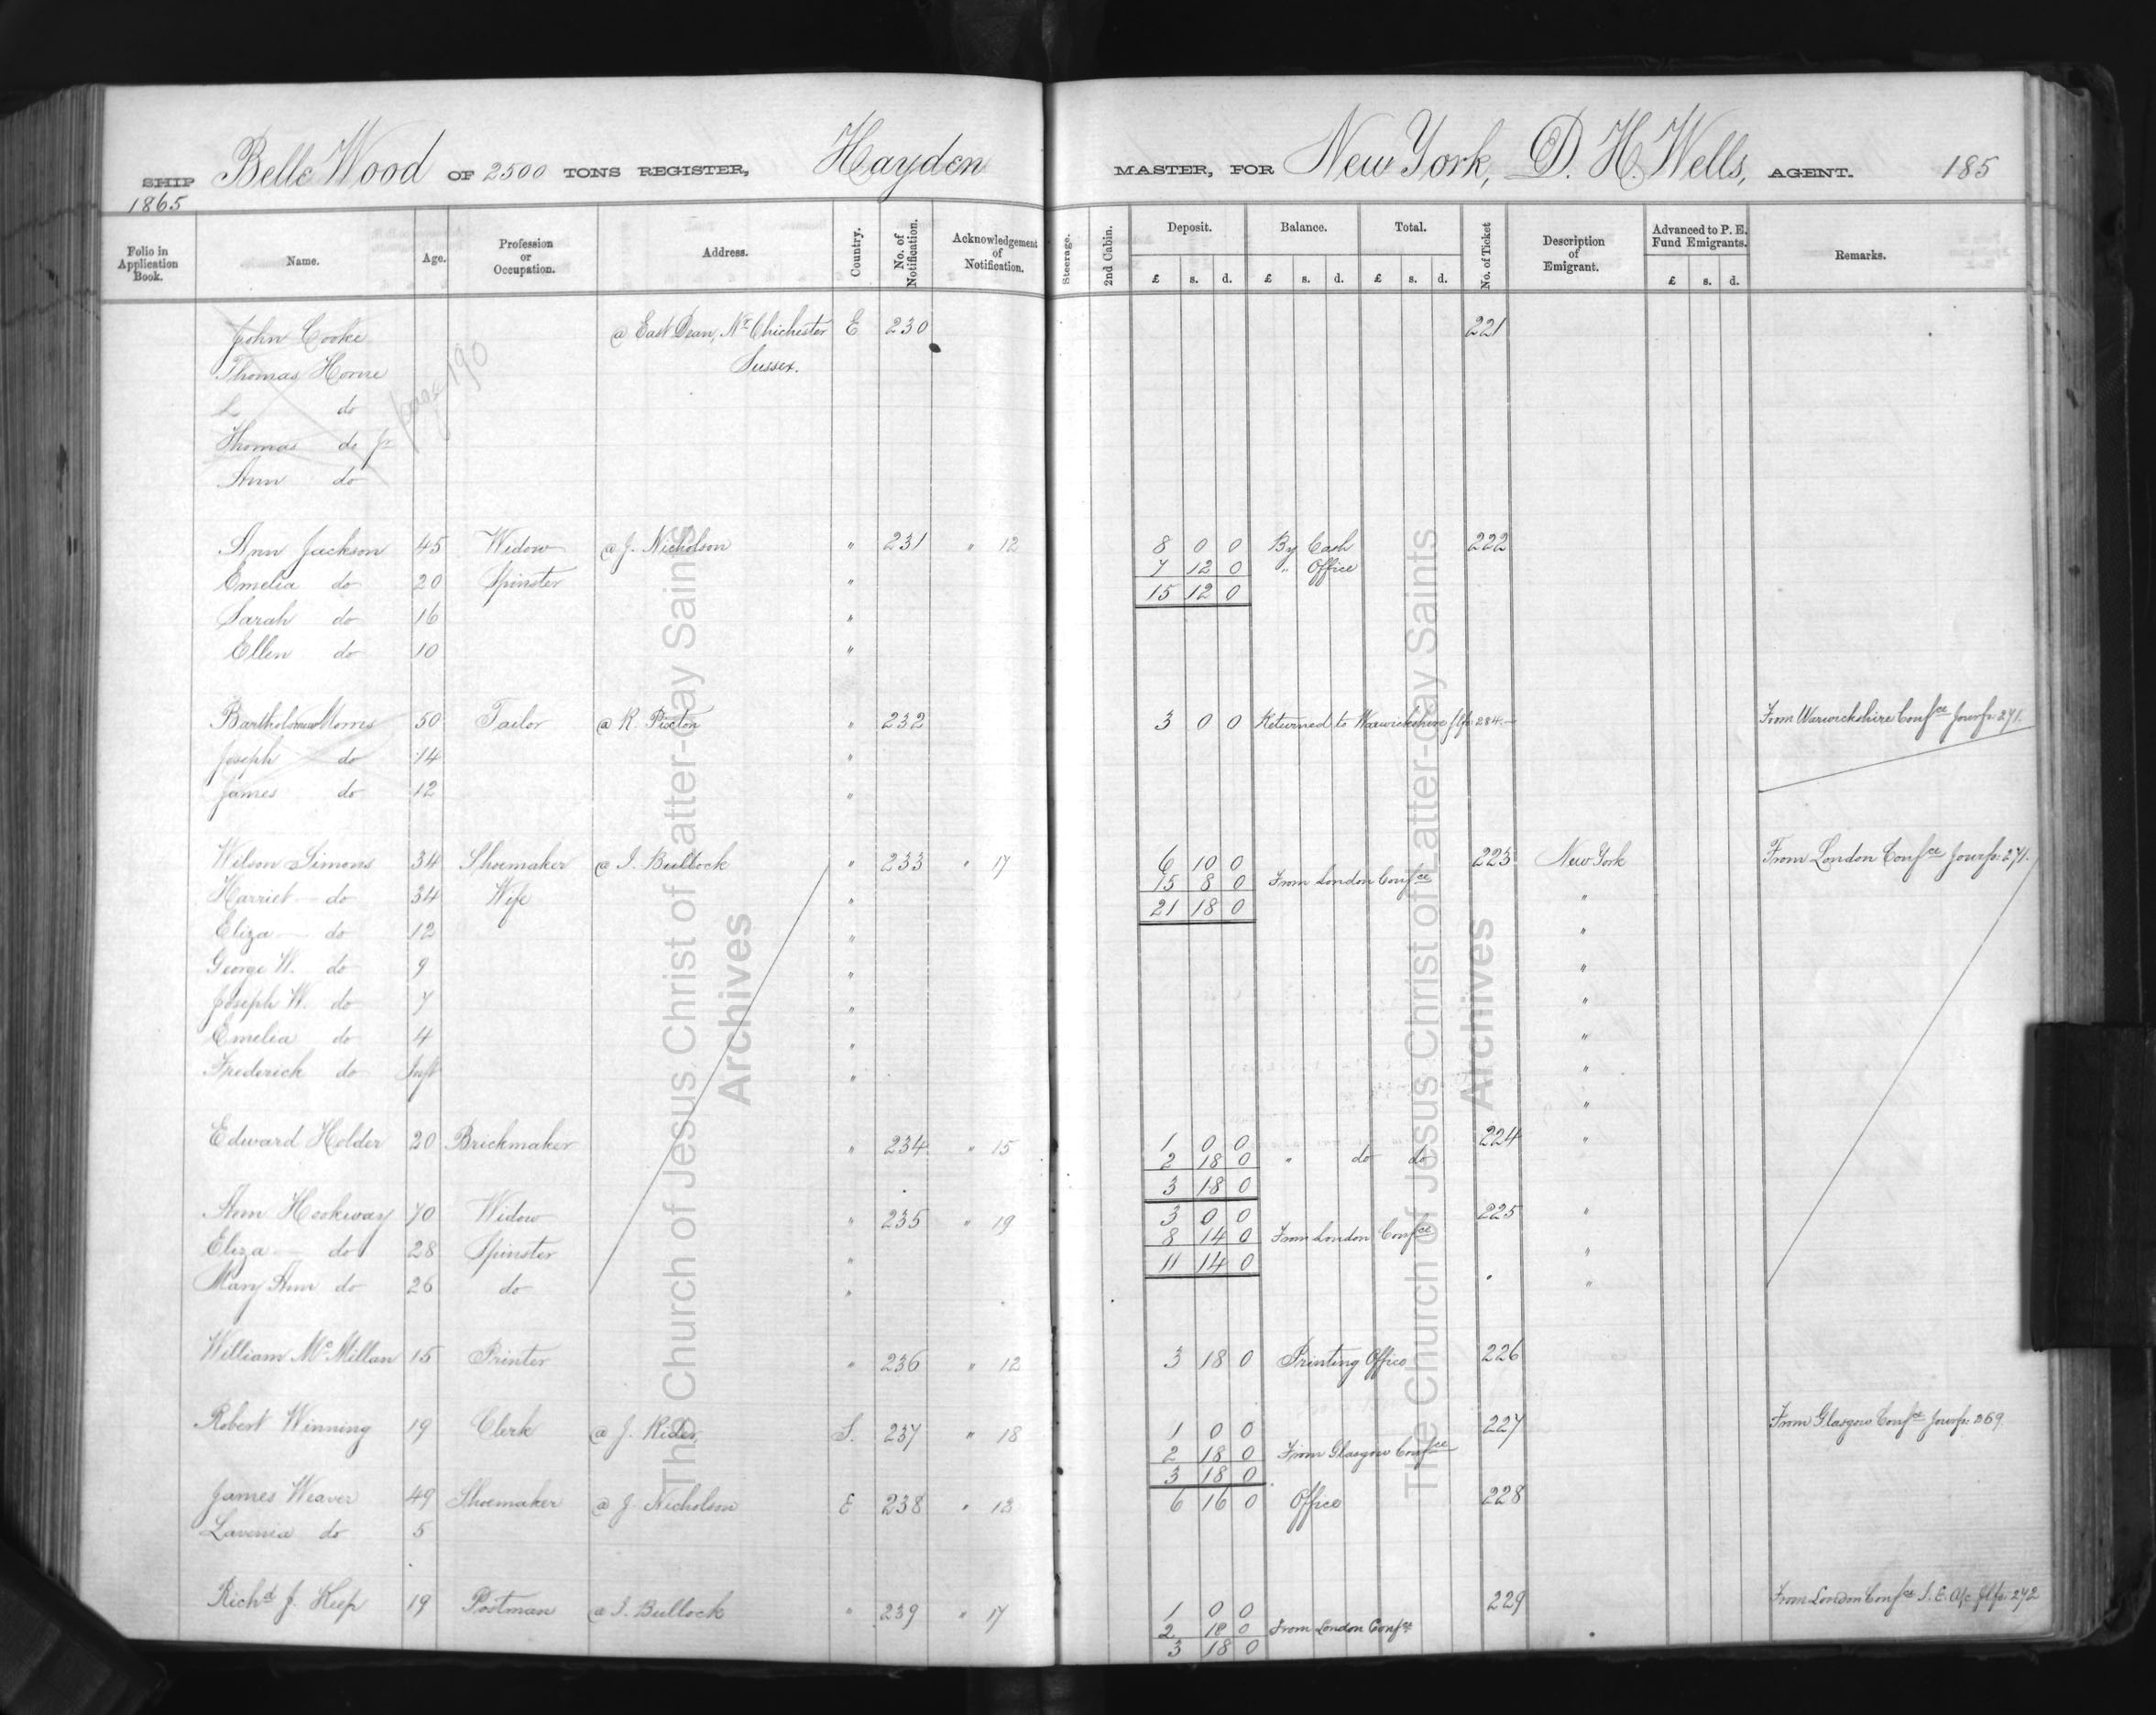 SHIP Belle Wood OF 2500 TONS REGISTER, Hayden MASTER, FOR New York, D. H. Wells, AGENT. 185
1865
Folio in Application Book. Name. Age. Profession or Occupation. Address. Country. No. of Notification. Acknowledgement of Notification. Steerage. 2nd Cabin. Deposit. Balance. Total. No. of Ticket Description of Emigrant. Advanced to P. E. Fund Emigrants. Remarks.
£ s. d. £ s. d. £ s. d. £ s. d.
John Cooke @ East Dean, Nr Chichester E 230 221
Thomas Horne Sussex.
page 190
L do
Thomas do Jr
Ann do
Ann Jackson 45 Widow @ J. Nicholson " 231 " 12 8 0 0 By Cash 222
7 12 0 " Office
Emelia do 20 Spinster "
15 12 0
Sarah do 16 "
Ellen do 10 "
Bartholomew Morris 50 Tailor @ R. Pixton " 232 3 0 0 Returned to Warwickshire 284 From Warwickshire Confce Jour fo: 271.
Joseph do 14 "
James do 12 "
Wilson Simons 34 Shoemaker @ I. Bullock " 233 " 17 6 10 0 223 New York From London Confce Jour fo: 271.
15 8 0 From London Confce
Harriet do 34 Wife " "
21 18 0
Eliza do 12 " "
George W. do 9 " "
Joseph W. do 7 " "
Emelia do 4 " "
Frederick do Inft " "
"
Edward Holder 20 Brickmaker " 234 " 15 1 0 0 224 "
2 18 0 " do do
3 18 0
Ann Hookway 70 Widow " 235 " 19 3 0 0 225 "
8 14 0 From London Confce
Eliza do 28 Spinster " "
11 14 0
Mary Ann do 26 do " "
William McMillan 15 Printer " 236 " 12 3 18 0 Printing Office 226
Robert Winning 19 Clerk @ J. Rider, S. 237 " 18 1 0 0 227 From Glasgow Confce Jour fo: 269.
2 18 0 From Glasgow Confce
3 18 0
James Weaver 49 Shoemaker @ J. Nicholson E 238 " 13 6 16 0 Office 228
Lavenia do 5
Richd J. Keep 19 Postman @ I. Bullock " 239 " 17 1 0 0 229 From London Confce I. E. a/c 272
2 18 0 From London Confce
3 18 0
The Church of Jesus Christ of Latter-day Saints
Archives
The Church of Jesus Christ of Latter-day Saints
Archives